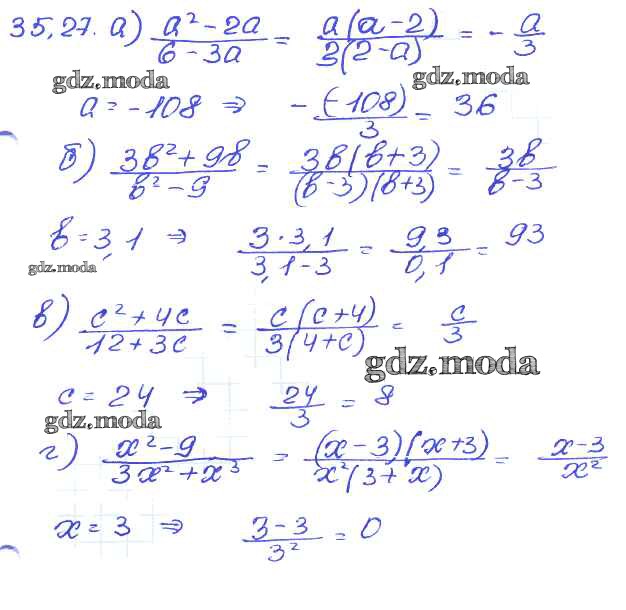 35,27. а) (a² - 2a)/(6 - 3a) = a(a - 2)/3(2 - a) = - a/3
gdz.moda gdz.moda
a = -108 ⇒ - (-108)/3 = 36
б) (3b² + 9b)/(b² - 9) = 3b(b + 3)/(b - 3)(b + 3) = 3b/(b - 3)
b = 3,1 ⇒ (3 · 3,1)/(3,1 - 3) = 9,3/0,1 = 93
gdz.moda
в) (c² + 4c)/(12 + 3c) = c(c + 4)/3(4 + c) = c/3
gdz.moda
c = 24 ⇒ 24/3 = 8
gdz.moda
г) (x² - 9)/(3x² + x³) = (x - 3)(x + 3)/x²(3 + x) = (x - 3)/x²
x = 3 ⇒ (3 - 3)/3² = 0